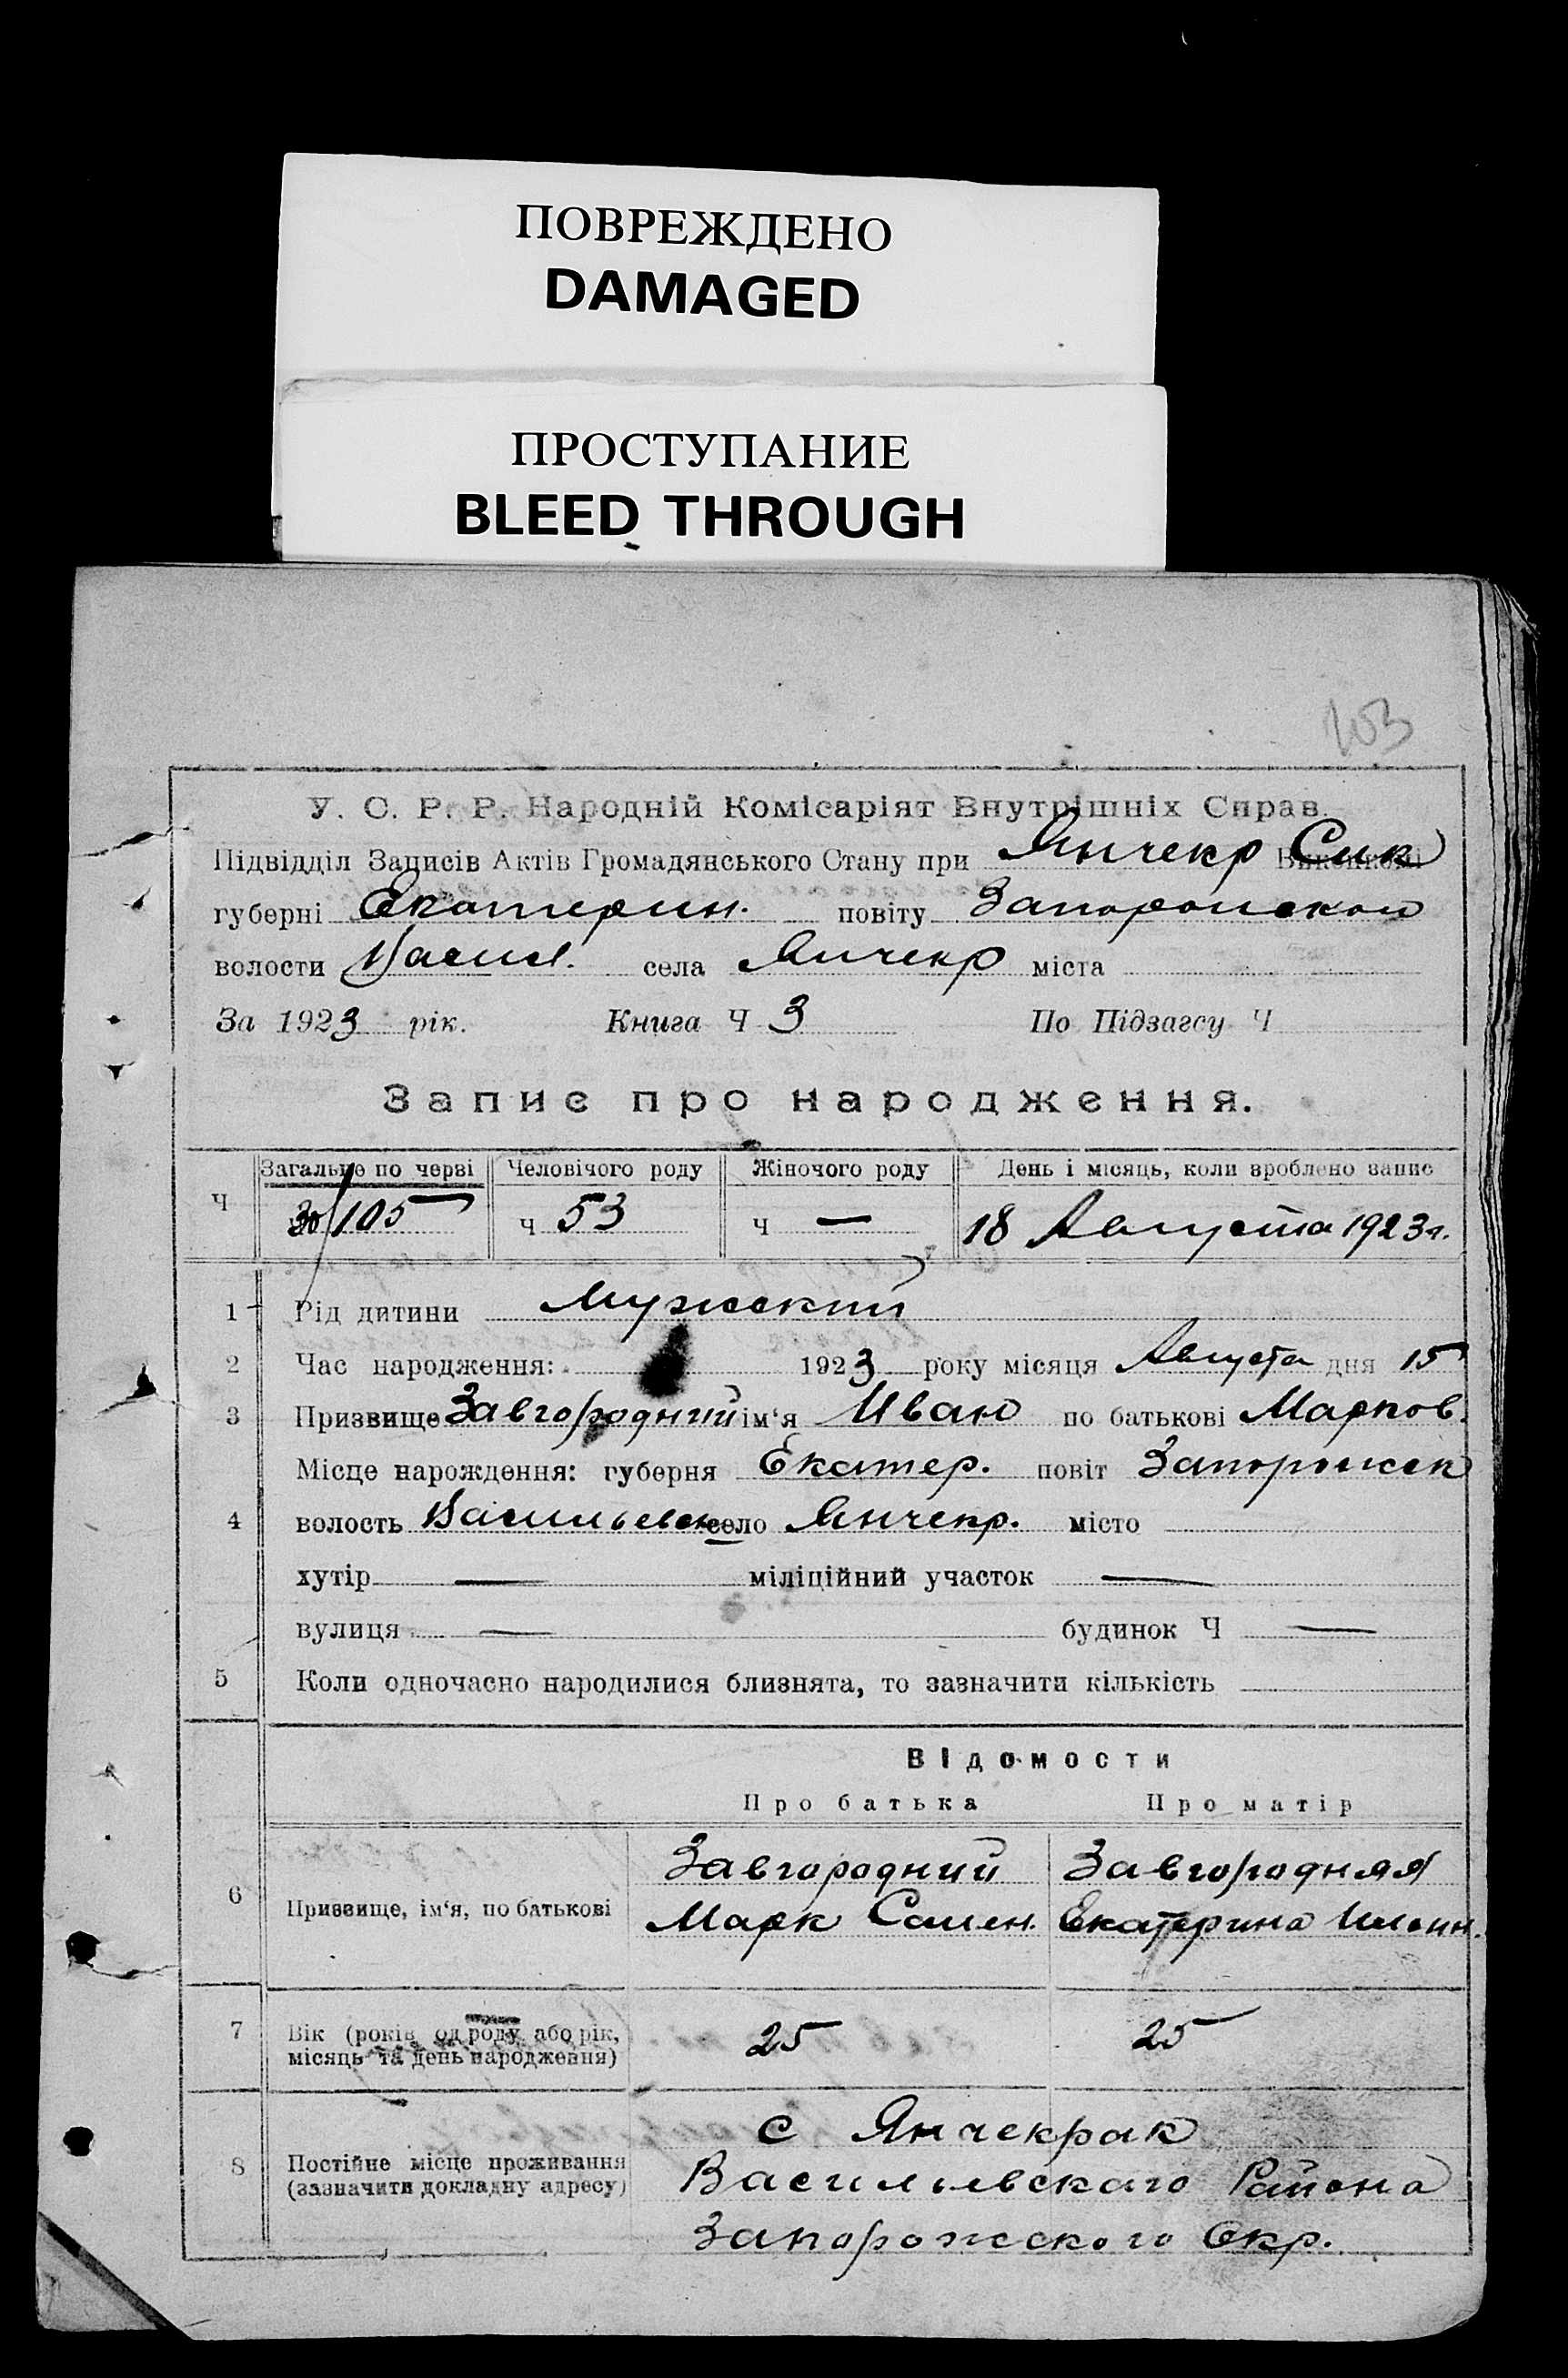 ПОВРЕЖДЕНО
DAMAGED
ПРОСТУПАНИЕ
BLEED THROUGH
103
У. С. Р. Р. Народній Комісаріят Внутрішніх Справ.
Підвідділ Записів Актів Громадянського Стану при Янчекр Сик Виконкомі
губерні Екатерин. повіту Запорожской
волости Васил. села Янчекр міста
За 1923 рік. Книга Ч 3 По Підзагсу Ч
Запис про народження.
Загальне по черві Человічого роду Жіночого роду День і місяць, коли зроблено запис
Ч 30/105 Ч 53 Ч — 18 Августа 1923 г.
1 Рід дитини Мужеский
2 Час народження: 1923 року місяця Августа дня 15
3 Призвище Завгородний ім'я Иван по батькові Марков.
Місце нарождення: губерня Екатер. повіт Запорожск
4 волость Васильевск село Янчекр. місто
хутір — міліційний участок —
вулиця — будинок Ч —
5 Коли одночасно народилися близнята, то зазначити кількість
Відомости
Про батька Про матір
6 Призвище, ім'я, по батькові Завгородний Завгородняя
Марк Самен. Екатерина Ильин.
7 Вік (років од роду або рік, місяць та день народження) 25 25
8 Постійне місце проживання (зазначити докладну адресу) с Янчекрак
Васильевскаго Района
Запорожского Окр.